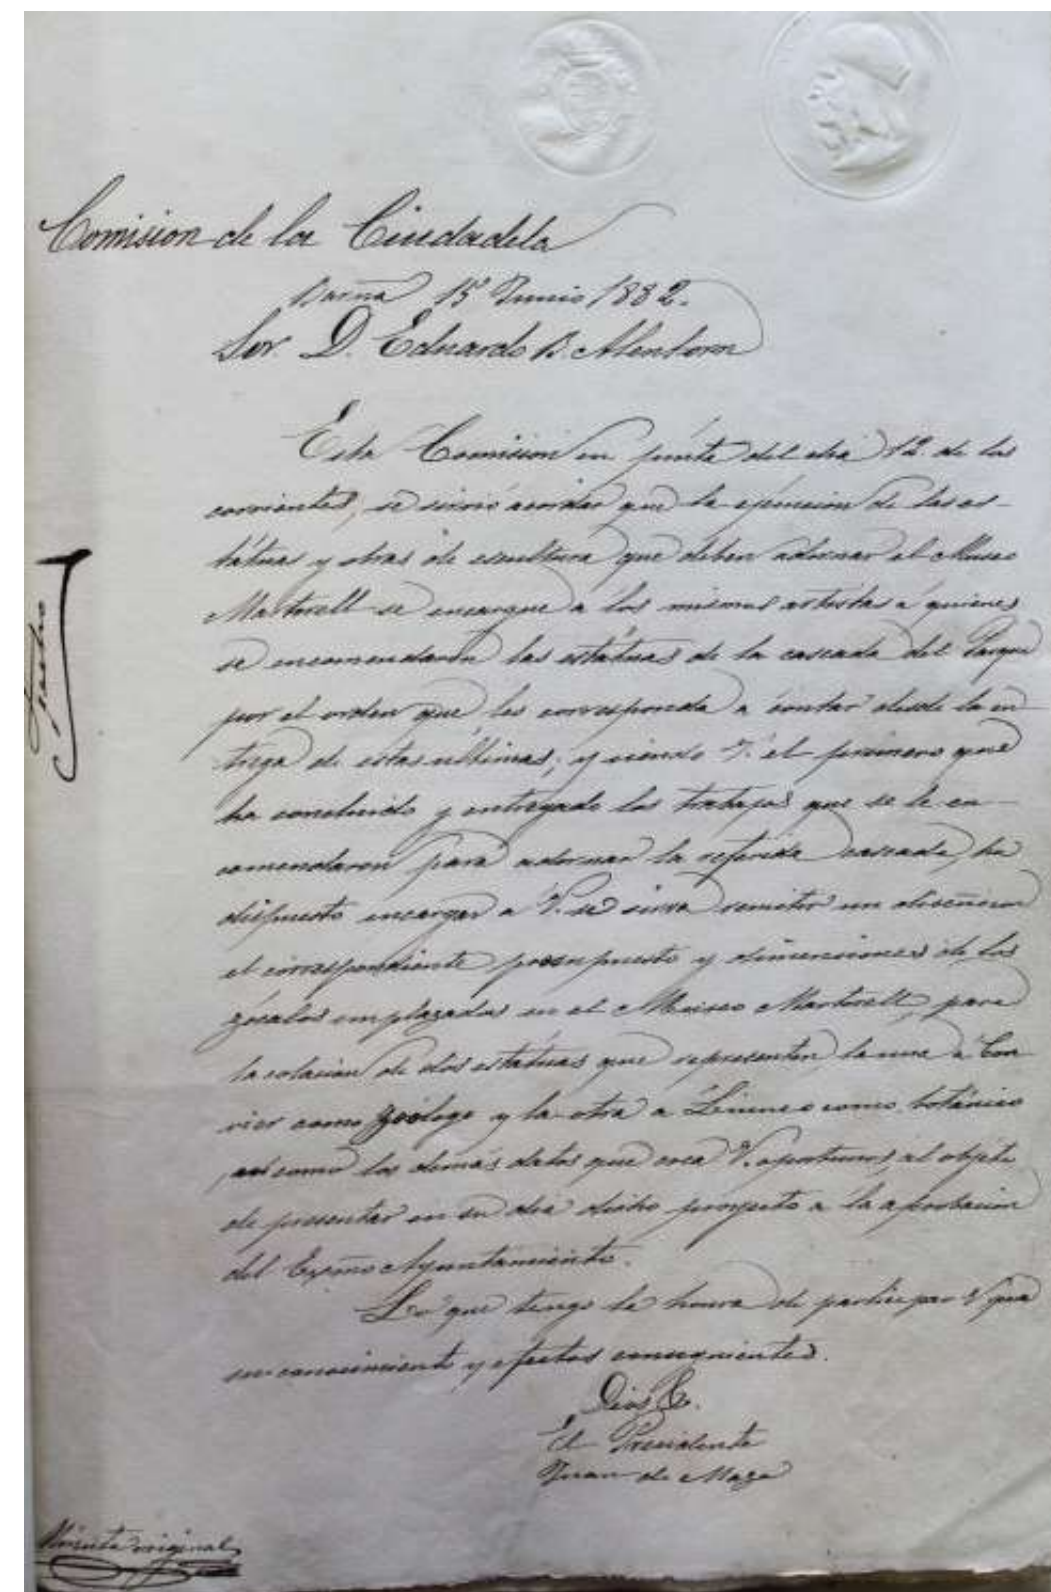 Comision de la Ciudadela
Barña 15 Junio 1882.
Sor. D. Eduardo B. Alentorn
Esta Comision en junta del dia 12 de los
corrientes, se sirvió acordar que la ejecucion de las es-
tátuas y obras de escultura que deben adornar el Museo
Martorell se encargue á los mismos artistas á quienes
se encomendaron las estátuas de la cascada del Parque
por el orden que les corresponda á contar desde la en-
trega de estas últimas; y siendo V. el primero que
ha concluido y entregado los trabajos que se le en-
comendaron para adornar la referida cascada, ha
dispuesto encargar a V. se sirva remitir un diseño con
el correspondiente presupuesto y dimensiones de los
zócalos emplazados en el Museo Martorell, para
la colacion de dos estátuas que representen la una á Cu-
vier como zoólogo y la otra a Linneo como botánico
asi como los demás datos que crea V. oportunos, al objeto
de presentar en su dia dicho proyecto a la aprobacion
del Excmo Ayuntamiento.
Lo que tengo la honra de participar á V. para
su conocimiento y efectos consiguientes.
Dios &.
El Presidente
Juan de Maza
Minuta original